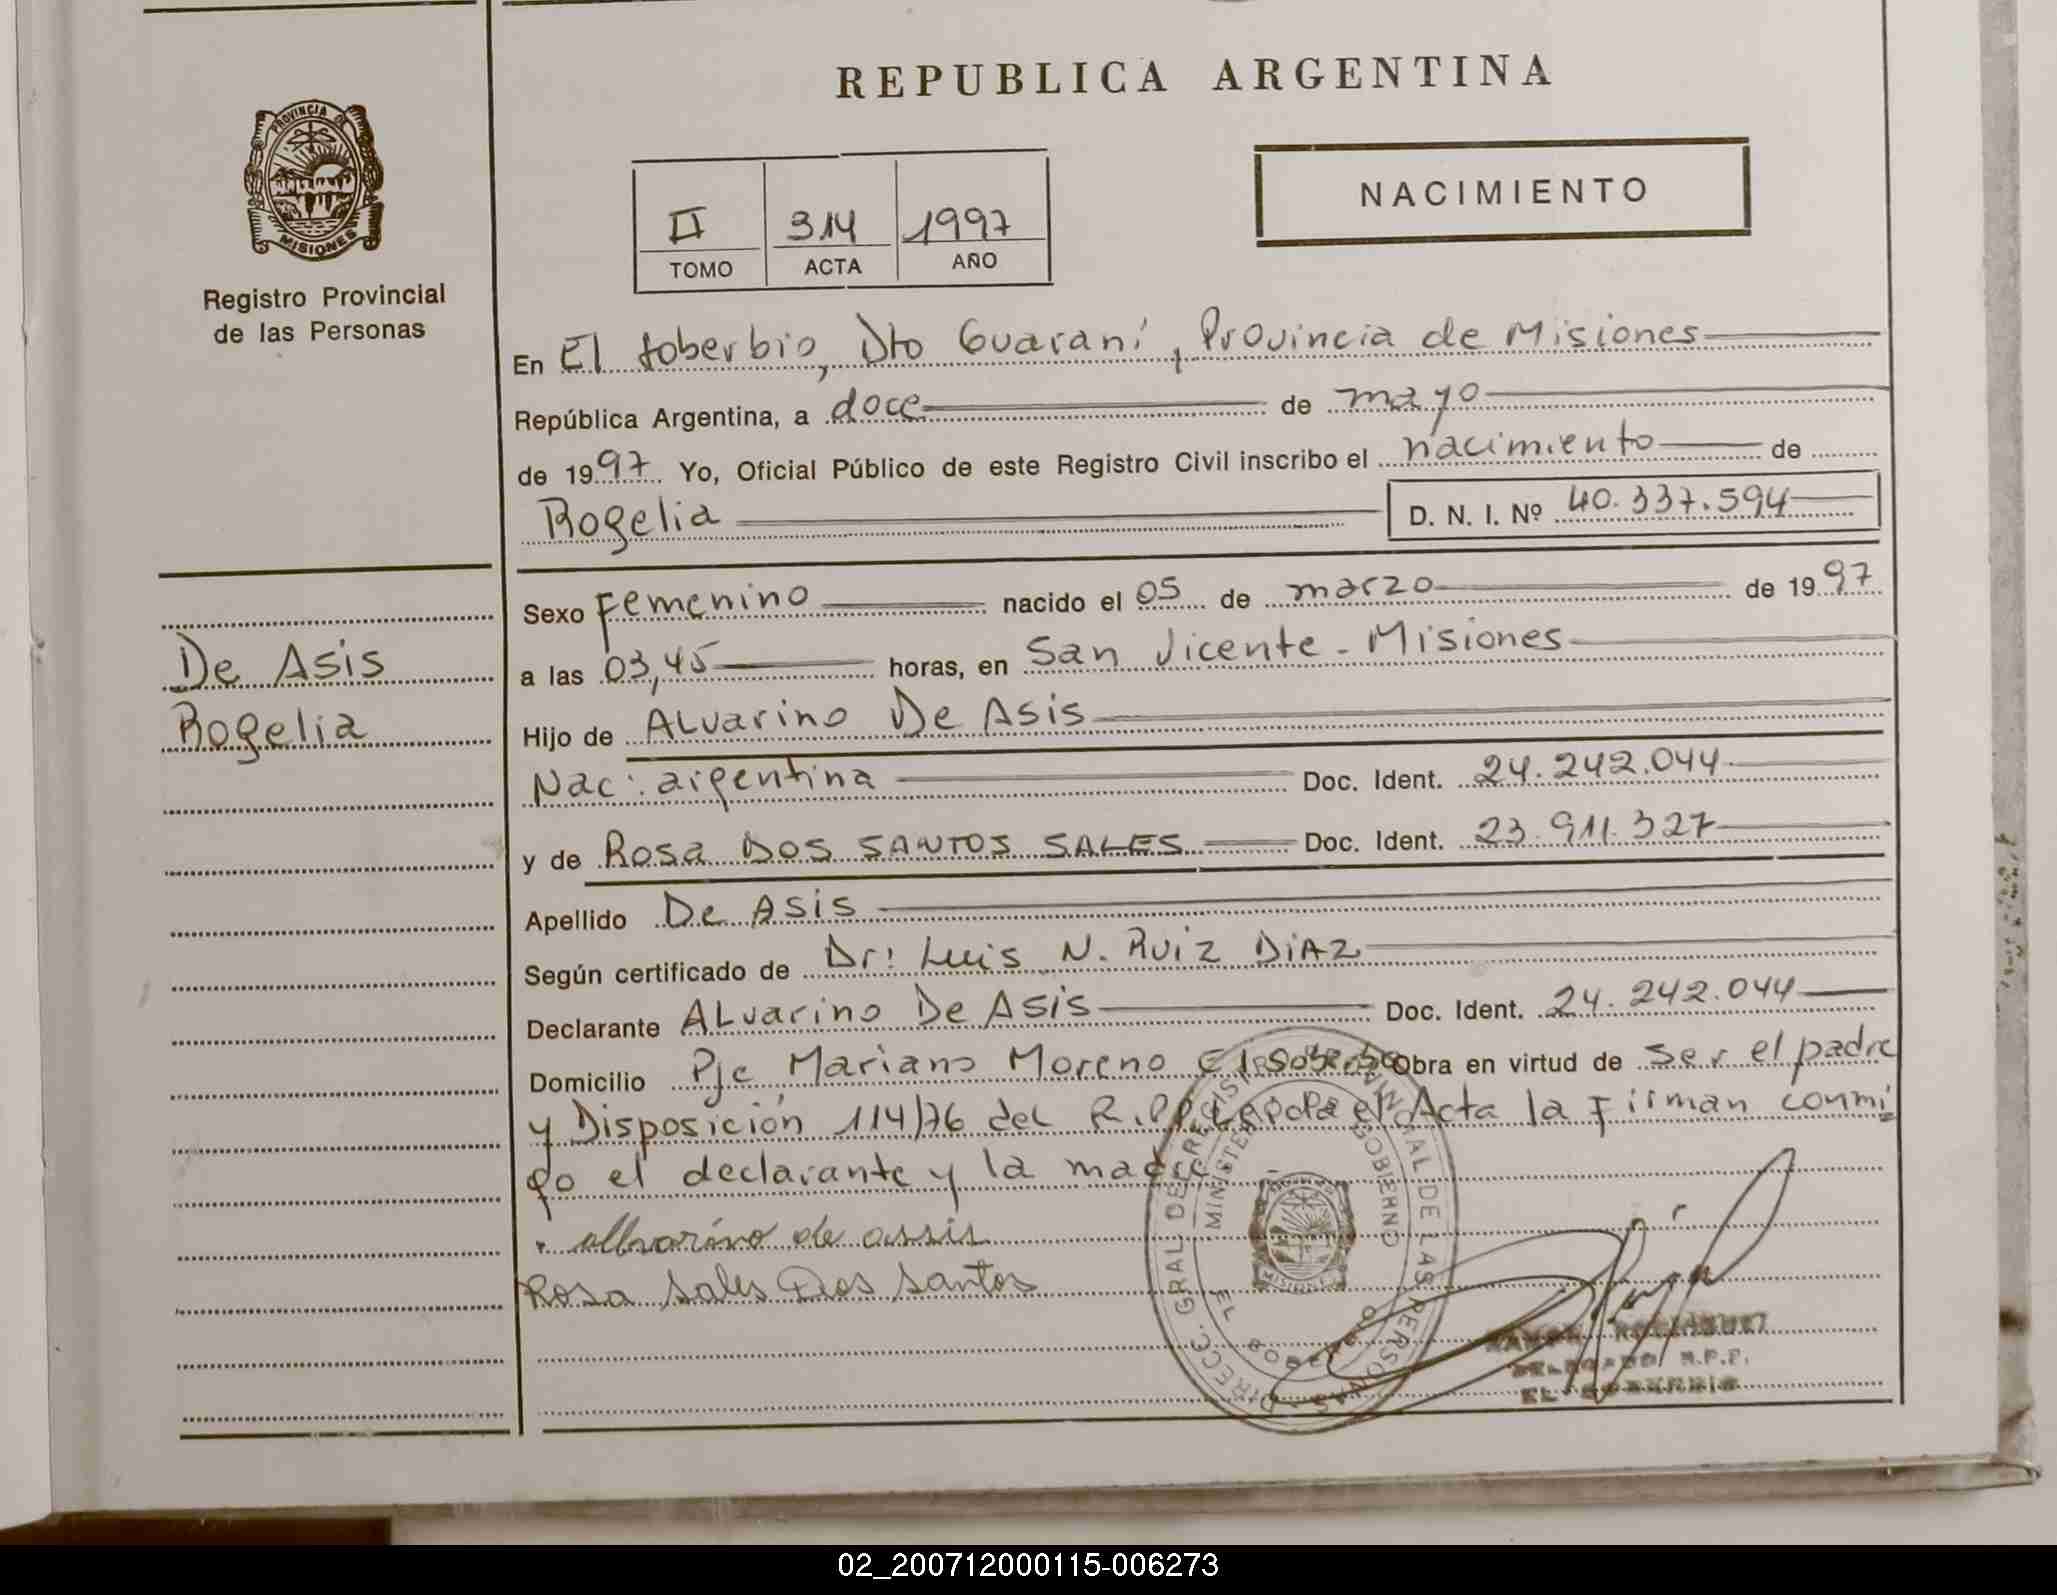 REPUBLICA ARGENTINA
PROVINCIA DE
MISIONES
Registro Provincial
de las Personas
NACIMIENTO
II 314 1997
TOMO ACTA AÑO
En El soberbio, Dto Guaraní, Provincia de Misiones
República Argentina, a doce de mayo
de 1997 Yo, Oficial Público de este Registro Civil inscribo el nacimiento de
Rogelia D. N. I. Nº 40.337.594
Sexo Femenino nacido el 05 de marzo de 1997
De Asis
Rogelia
a las 03,45 horas, en San Vicente - Misiones
Hijo de ALvarino De Asis
Nac: argentina Doc. Ident. 24.242.044
y de Rosa DOS SANTOS SALES Doc. Ident. 23.911.327
Apellido De Asis
Según certificado de Dr: Luis N. Ruiz DiAZ
Declarante ALvarino De Asis Doc. Ident. 24.242.044
Domicilio Pje Mariano Moreno El Soberbio Obra en virtud de ser el padre
y Disposición 114/76 del Acta la Firman conmi
go el declarante y la madre
allvarino de assis
Rosa Sales Dos Santos
DIRECC. GRAL DE REGISTRO PROVINCIAL DE LAS PERSONAS
MINISTERIO GOBIERNO
EL SOBERBIO
MISIONES
DELEGADO R.P.P.
EL SOBERBIO
02_200712000115-006273